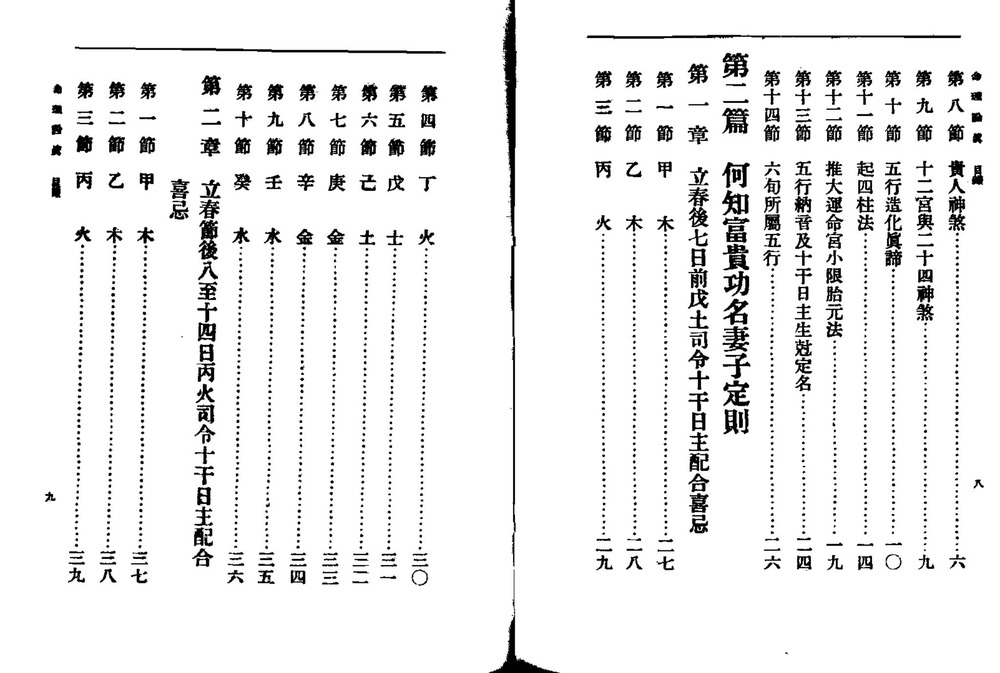 命理㑹㝎 目錄
第八節 貴人神煞……六
第九節 十二宮與二十四神煞……九
第十節 五行造化眞諦……一〇
第十一節 起四柱法……一四
第十二節 推大運命宮小限胎元法……一九
第十三節 五行納音及十干日主生尅定名……二四
第十四節 六旬所屬五行……二六
第二篇 何知富貴功名妻子定則
第一章 立春後七日前戊土司令十干日主配合喜忌
第一節 甲木……二七
第二節 乙木……二八
第三節 丙火……二九
八
第四節 丁火……三〇
第五節 戊土……三一
第六節 己土……三二
第七節 庚金……三三
第八節 辛金……三四
第九節 壬水……三五
第十節 癸水……三六
第二章 立春節後八至十四日丙火司令十干日主配合
喜忌
第一節 甲木……三七
第二節 乙木……三八
第三節 丙火……三九
目錄
九